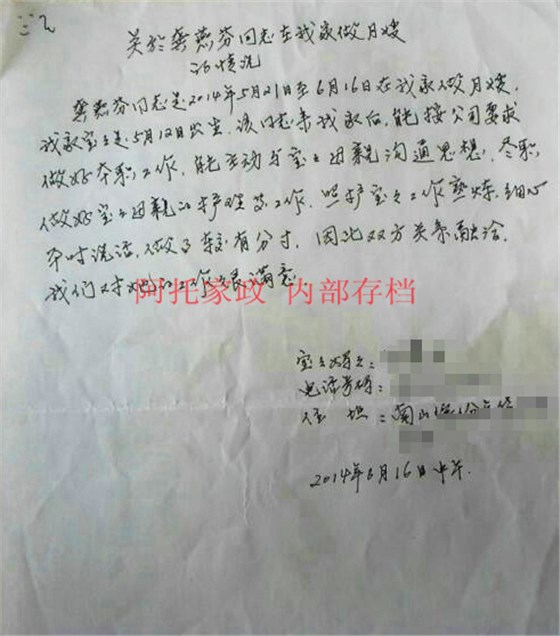 关於龚燕芬同志在我家做月嫂
的情况
龚燕芬同志是2014年5月21日至6月16日在我家做月嫂,
我家宝宝是5月12日出生.该同志来我家后,能按公司要求
做好本职工作,能主动与宝宝母亲沟通思想,尽职
做好宝宝母亲的护理等工作.照护宝宝工作熟炼,细心
平时说话,做事较有分寸,因此双方关系融洽.
我们对她的工作很满意
阿托家政 内部存档
宝宝
电话号码:
住 址:南山
2014年6月16日中午.